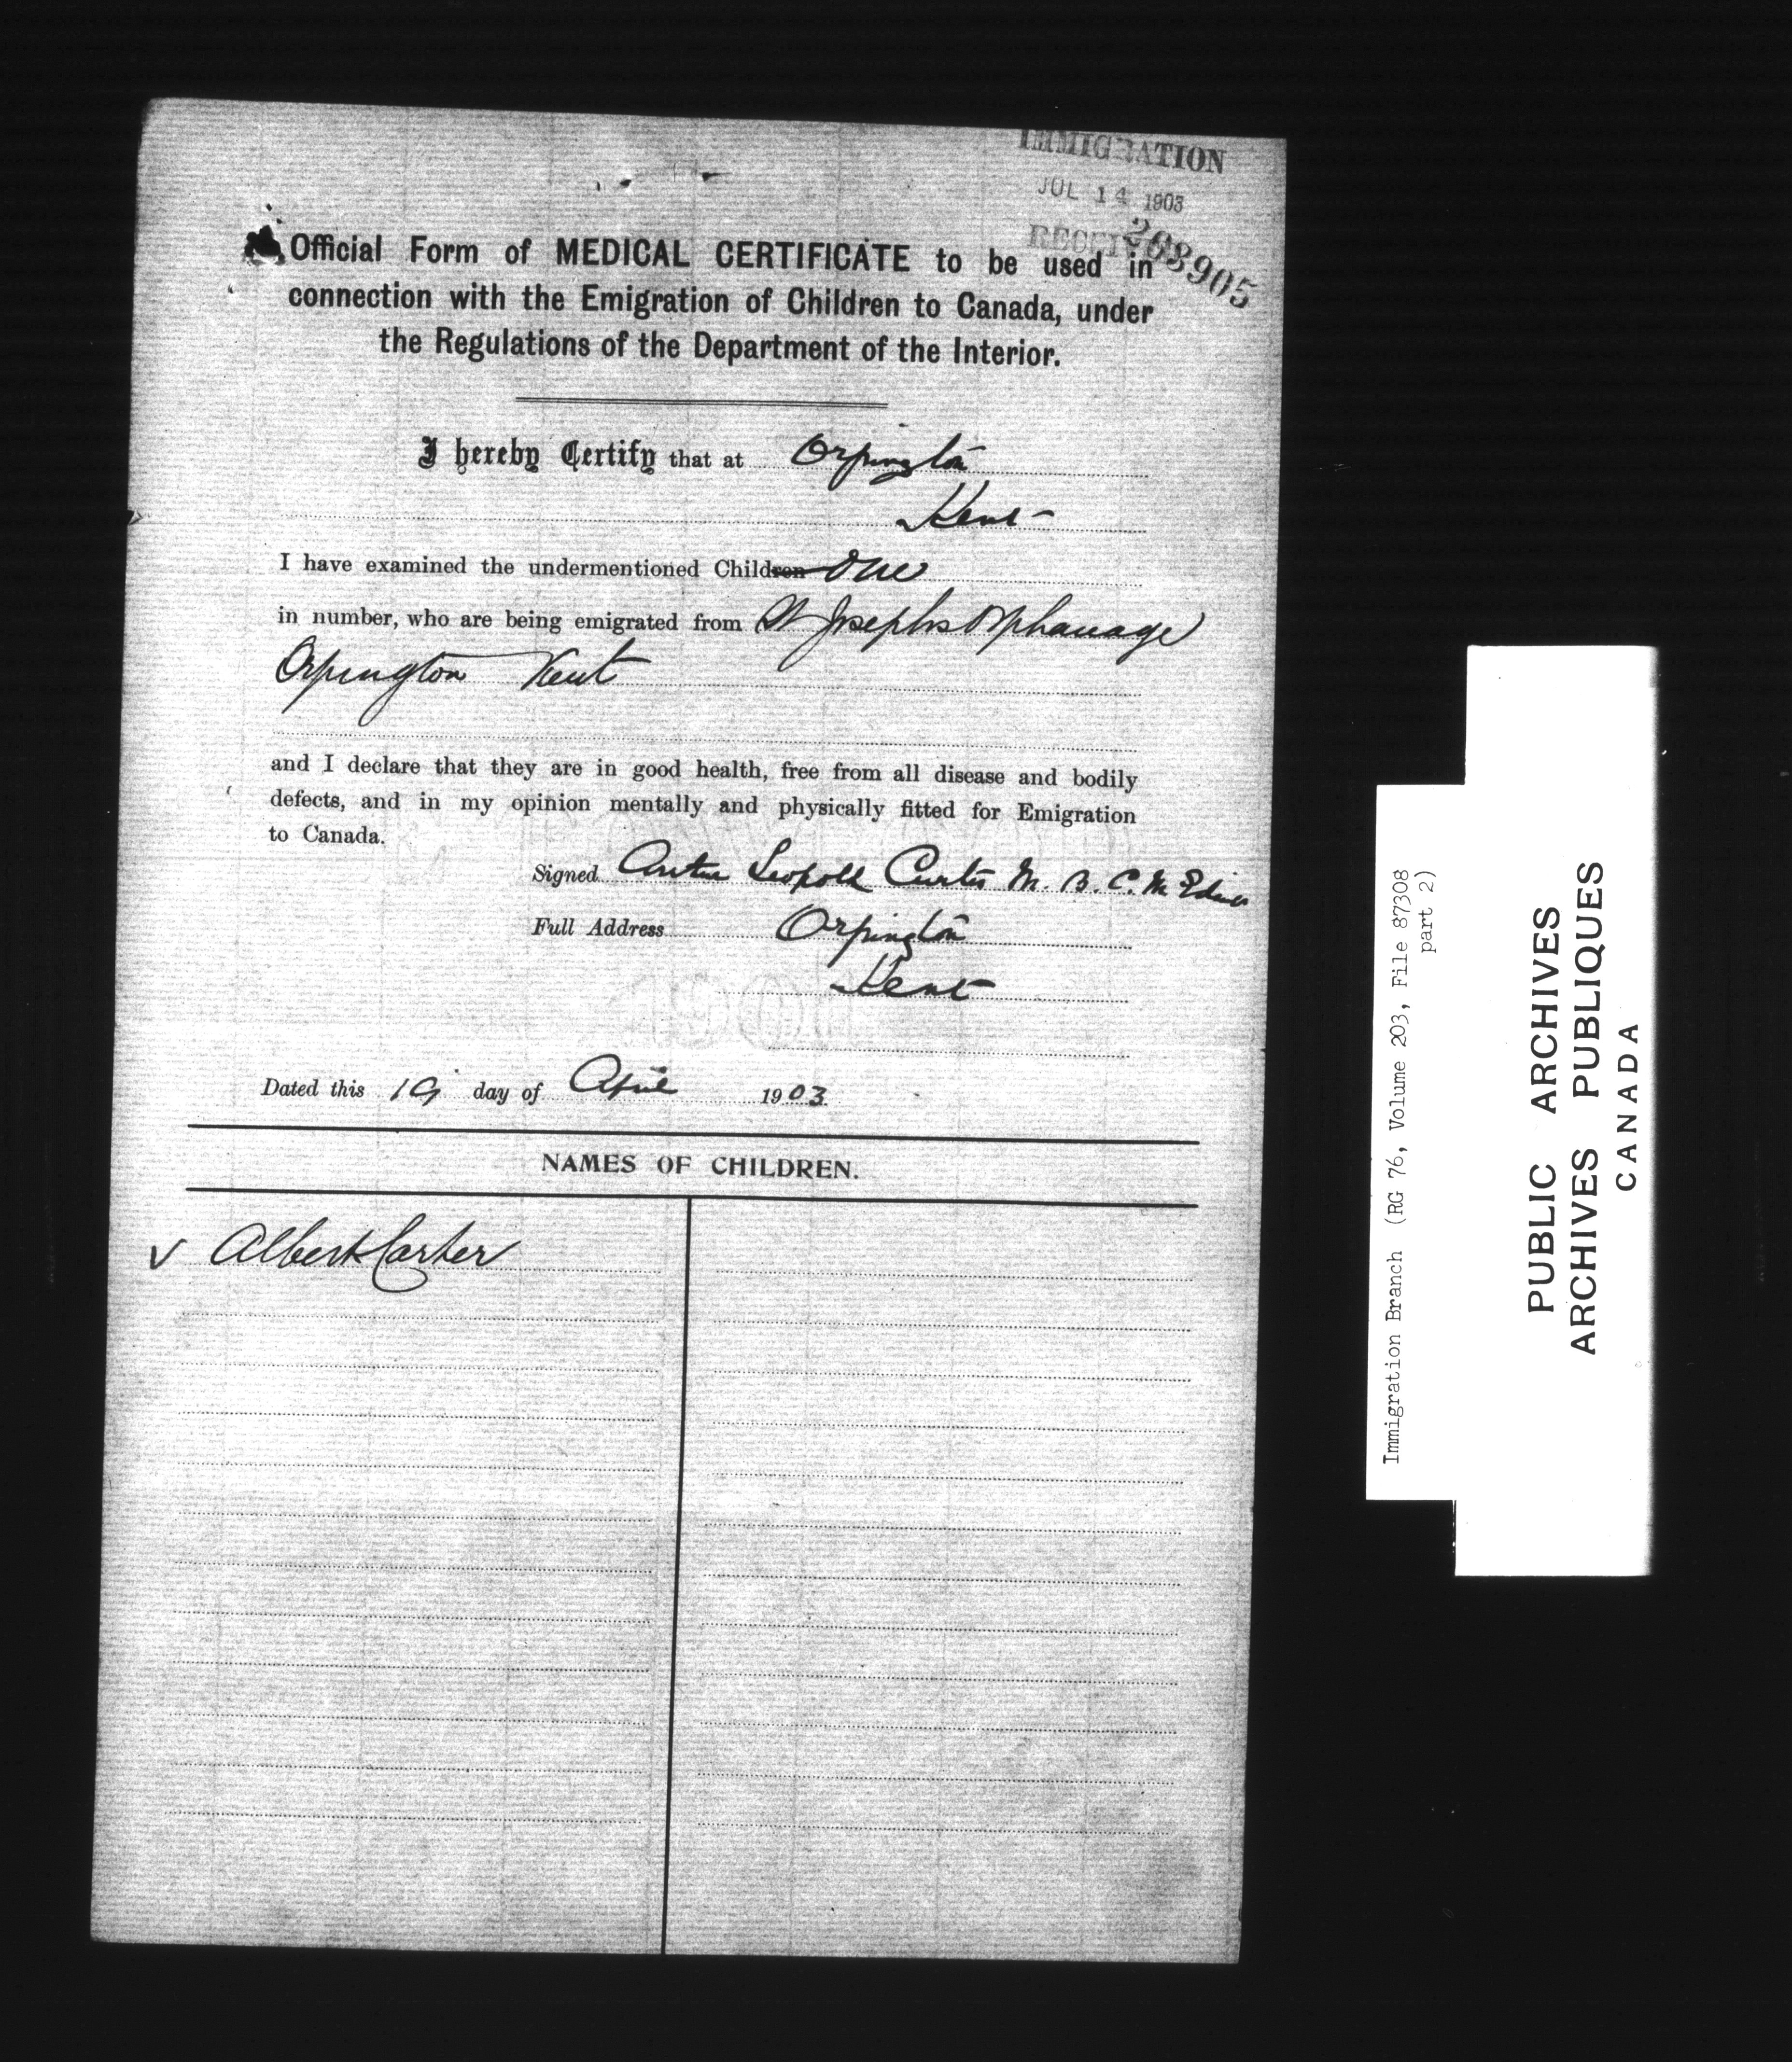 IMMIGRATION
JUL 14 1903
RECEIVED
268905
Official Form of MEDICAL CERTIFICATE to be used in
connection with the Emigration of Children to Canada, under
the Regulations of the Department of the Interior.
I hereby Certify that at Orpington
Kent
I have examined the undermentioned Children one
in number, who are being emigrated from St Josephs Orphanage
Orpington Kent
and I declare that they are in good health, free from all disease and bodily
defects, and in my opinion mentally and physically fitted for Emigration
to Canada.
Signed Leopold Curtis M.B.C.M.
Full Address Orpington
Kent
Dated this 19 day of April 1903.
NAMES OF CHILDREN.
Albert Carter
Immigration Branch (RG 76, Volume 203, File 87308
part 2)
PUBLIC ARCHIVES
ARCHIVES PUBLIQUES
CANADA